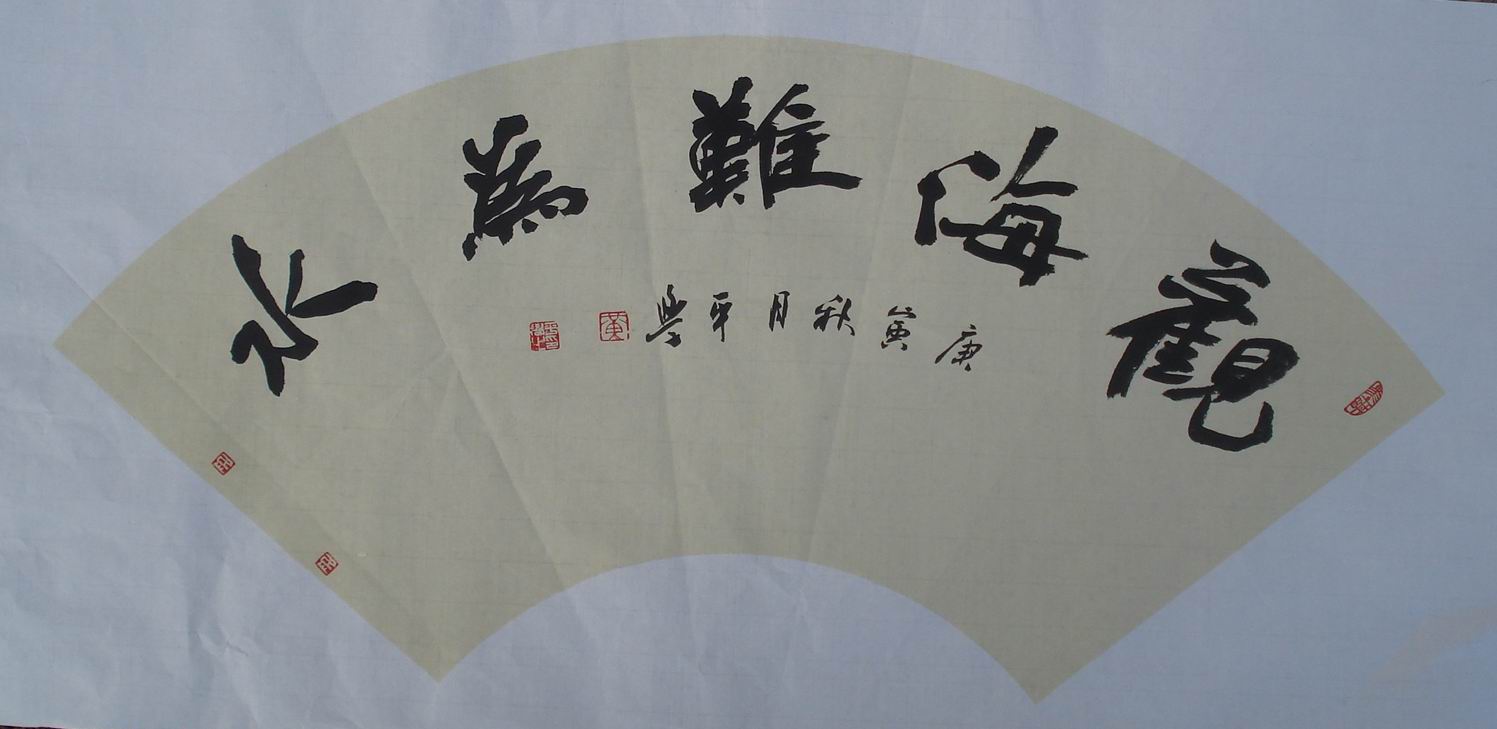 觀海難為水
庚寅秋月平學